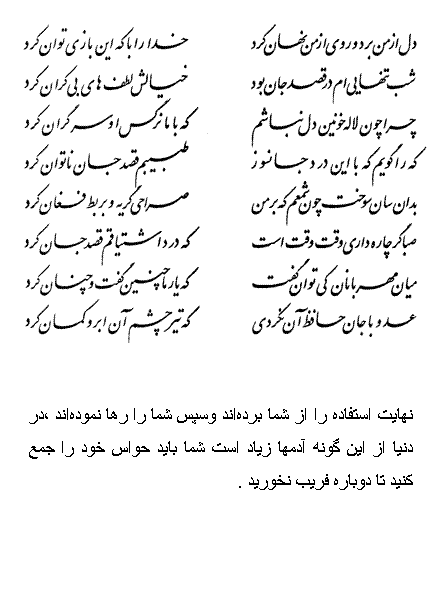 دل از من برد و روی از من نهان کرد خدا را با که این بازی توان کرد
شب تنهایی‌ام در قصد جان بود خیالش لطف‌های بی‌کران کرد
چرا چون لاله خونین دل نباشم که با ما نرگس او سر گران کرد
که را گویم که با این درد جانسوز طبیبم قصد جان ناتوان کرد
بدان سان سوخت چون شمعم که بر من صراحی گریه و بربط فغان کرد
صبا گر چاره داری وقت وقت است که درد اشتیاقم قصد جان کرد
میان مهربانان کی توان گفت که یار ما چنین گفت و چنان کرد
عدو با جان حافظ آن نکردی که تیر چشم آن ابرو کمان کرد
نهایت استفاده را از شما برده‌اند وسپس شما را رها نموده‌اند ،در
دنیا از این گونه آدمها زیاد است شما باید حواس خود را جمع
کنید تا دوباره فریب نخورید .